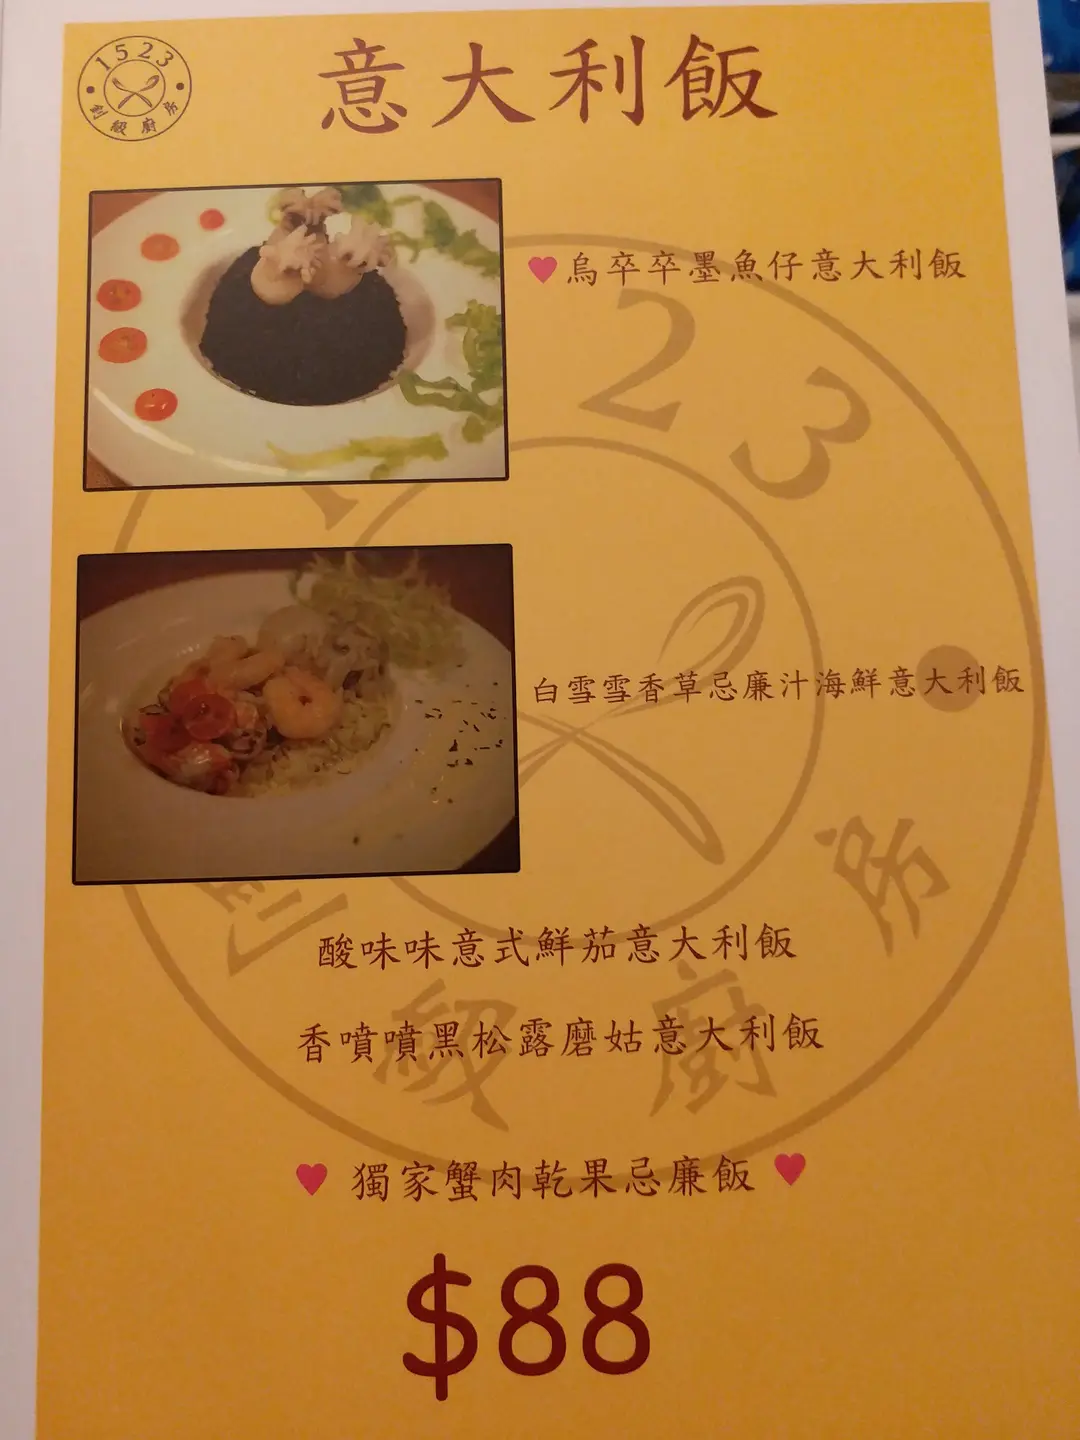 1523
創級廚房
意大利飯
烏卒卒墨魚仔意大利飯
白雪雪香草忌廉汁海鮮意大利飯
酸味味意式鮮茄意大利飯
香噴噴黑松露磨姑意大利飯
獨家蟹肉乾果忌廉飯
$88